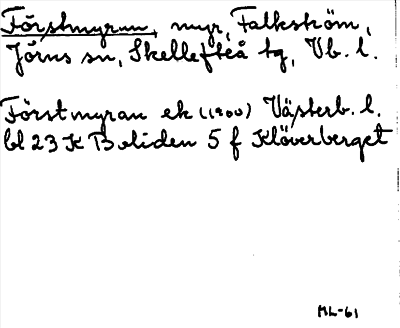 Förstmyran, myr, Falkström,
Jörns sn, Skellefteå tg, Vb. l.
Förstmyran ek (1900) Västerb. l.
bl 23 K Boliden 5 f Klöverberget
ML-61